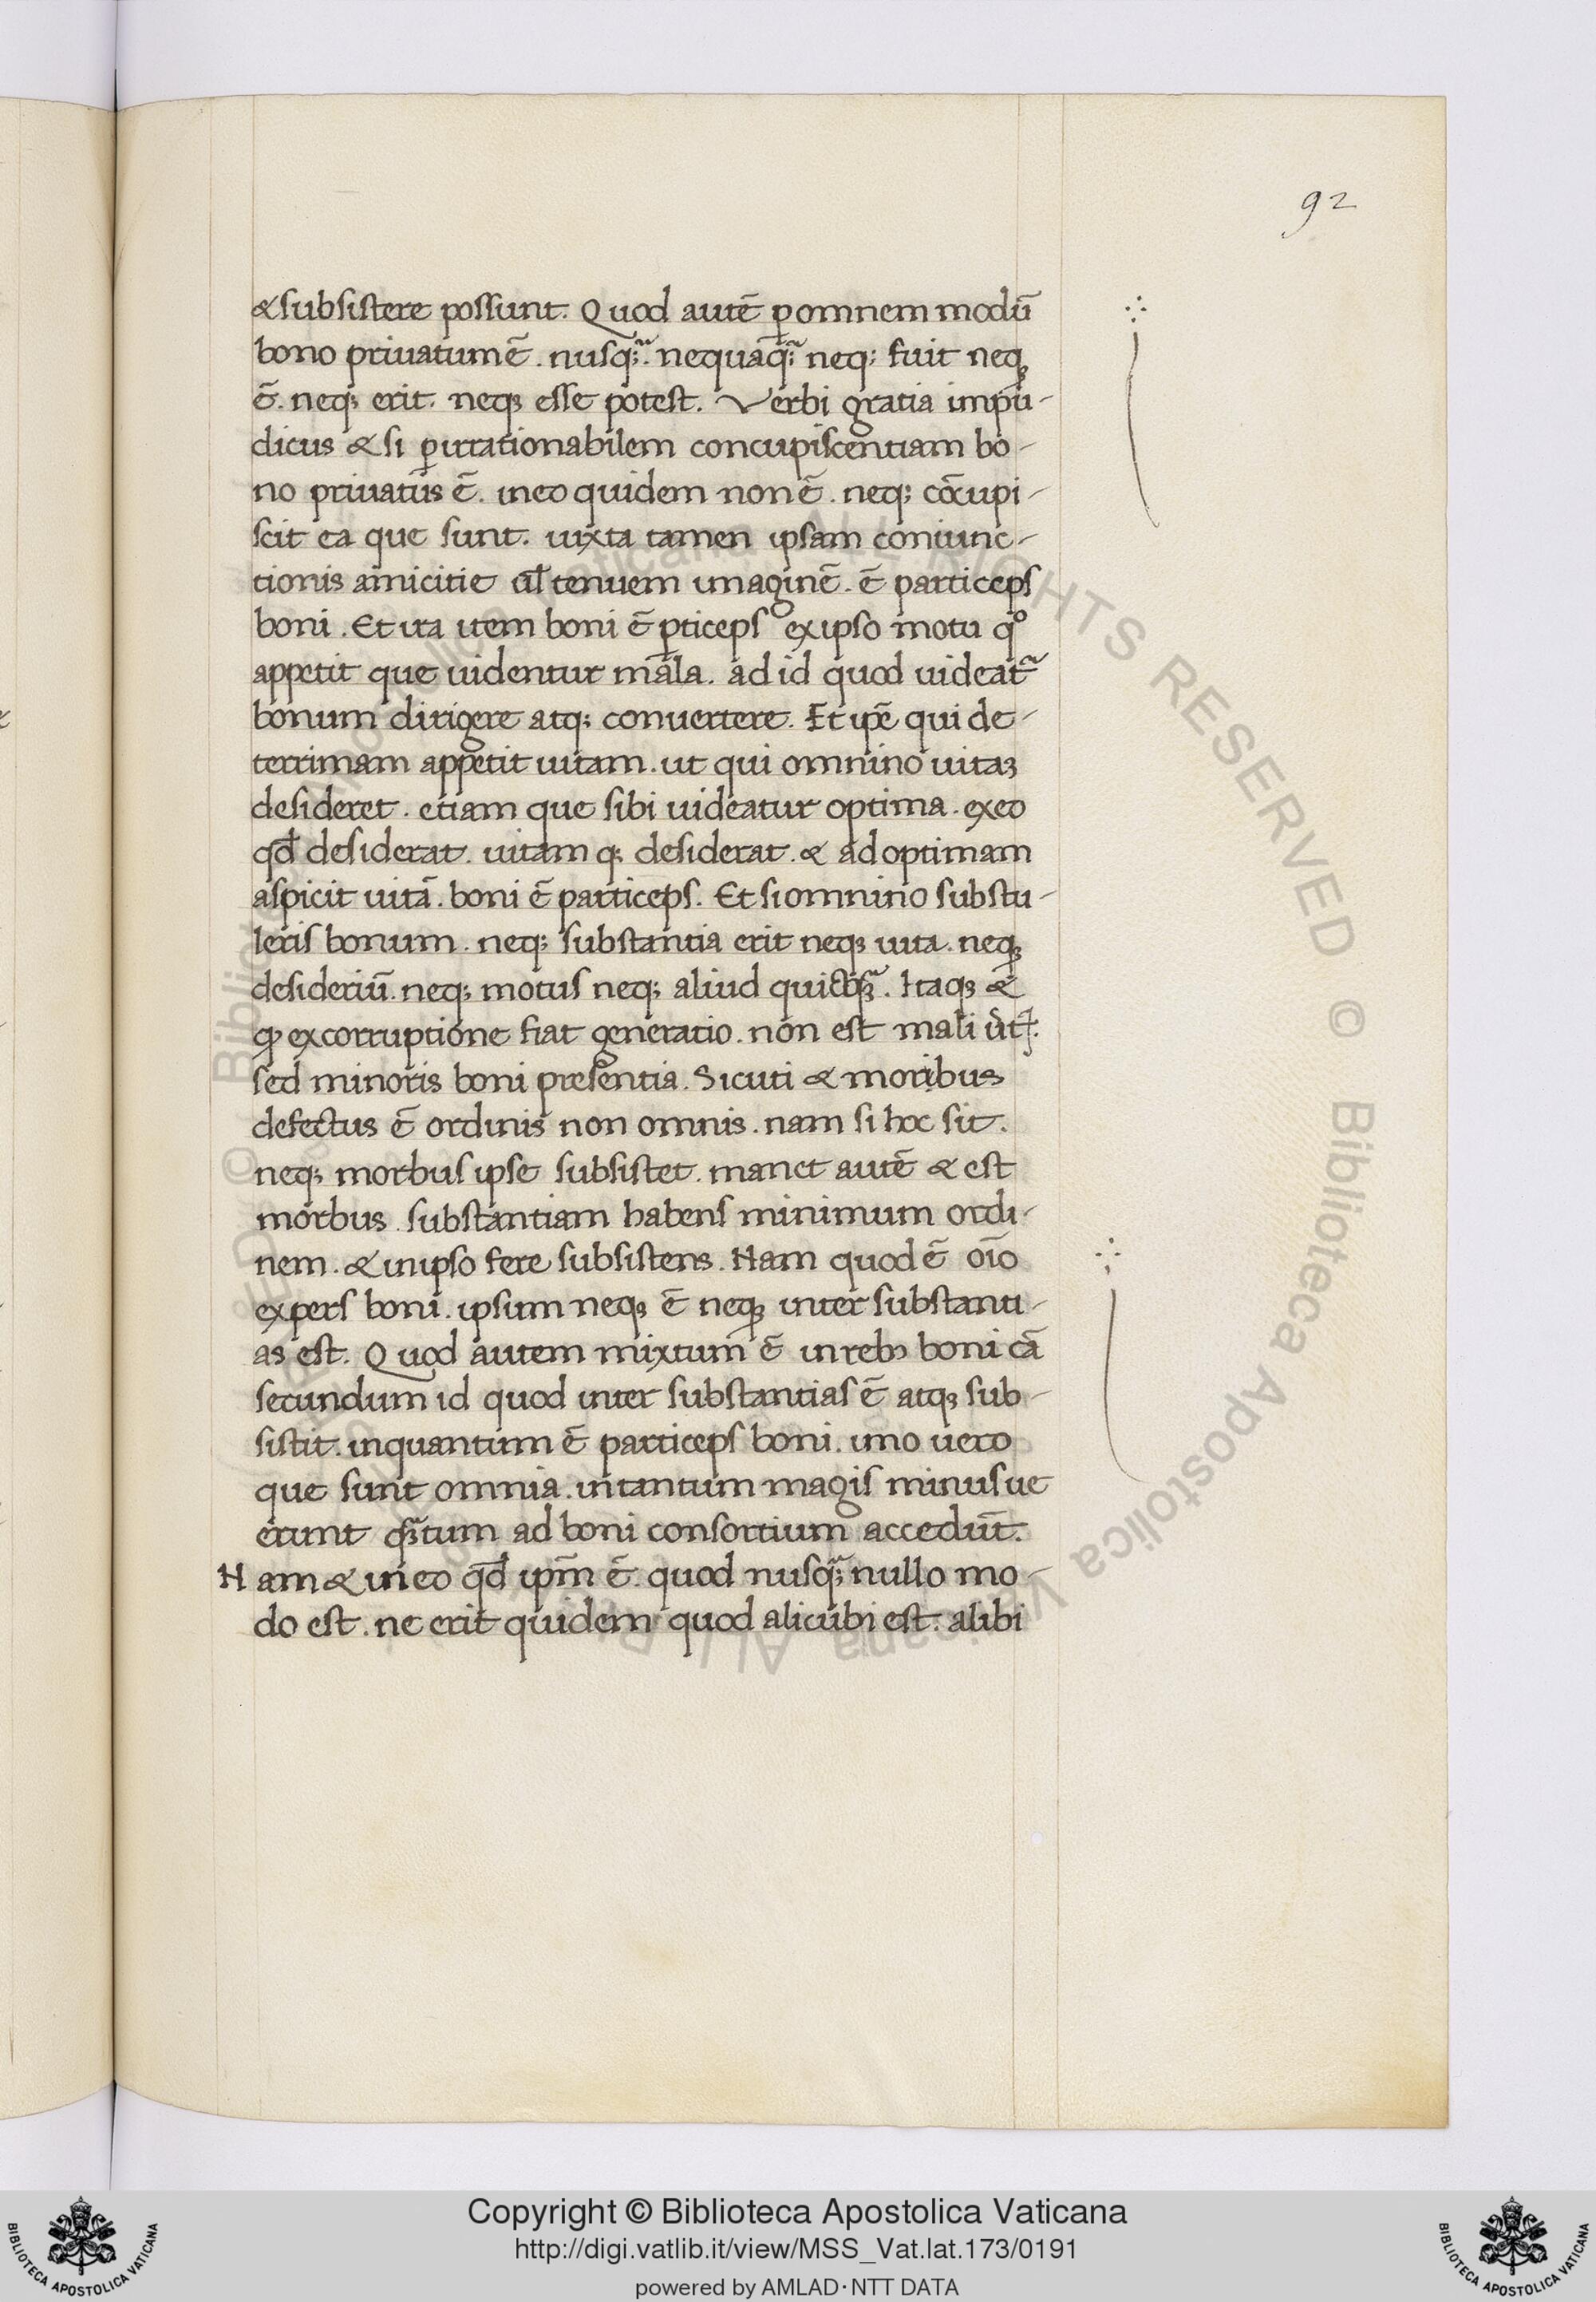 92
& subsistere possunt. Quod autē ꝑ omnem modū
bono priuatum ē. nusꝗ̃. nequaꝗ̃ neqꝫ fuit neqꝫ
ē. neqꝫ erit. neqꝫ esse potest. Verbi gratia impu-
dicus & si ꝑ irrationabilem concupiscentiam bo-
no priuatus ē. in eo quidem non ē. neqꝫ cōcupi-
scit ea que sunt. iuxta tamen ipsam coniunc-
tionis amicitie tenuem imaginē. ē particeps
boni. Et ita item boni ē ꝑticeps ex ipso motu qͦ
appetit que uidentur mala. ad id quod uideat᷑
bonum dirigere atqꝫ conuertere. Et ip̄e qui de-
terrimam appetit uitam. ut qui omnino uitaꝫ
desideret. etiam que sibi uideatur optima. ex eo
qđ desiderat. uitam qꝫ desiderat. & ad optimam
aspicit uitā. boni ē particeps. Et si omnino substu-
leris bonum. neqꝫ substantia erit neqꝫ uita. neqꝫ
desideriū. neqꝫ motus neqꝫ aliud. Itaqꝫ &
ꝙ ex corruptione fiat generatio. non est mali
sed minoris boni presentia. Sicuti & moribus
defectus ē ordinis non omnis. nam si hoc sit.
neqꝫ morbus ipse subsistet. manet autē & est
morbus. substantiam habens minimum ordi-
nem. & in ipso fere subsistens. Nam quod ē oīo
expers boni. ipsum neqꝫ ē neqꝫ inter substanti-
as est. Quod autem mixtum ē in rebꝫ boni cā
secundum id quod inter substantias ē atqꝫ sub-
sistit. inquantum ē particeps boni. imo uero
que sunt omnia. in tantum magis minusue
erunt ꝗ̃tum ad boni consortium accedūt.
Nam & in eo qđ ip̄m ē. quod nusꝗ̃ nullo mo-
do est. ne erit quidem quod alicubi est. alibi
© Biblioteca Apostolica Vaticana ALL RIGHTS RESERVED
Copyright © Biblioteca Apostolica Vaticana
http://digi.vatlib.it/view/MSS_Vat.lat.173/0191
powered by AMLAD·NTT DATA
BIBLIOTECA APOSTOLICA VATICANA
BIBLIOTECA APOSTOLICA VATICANA